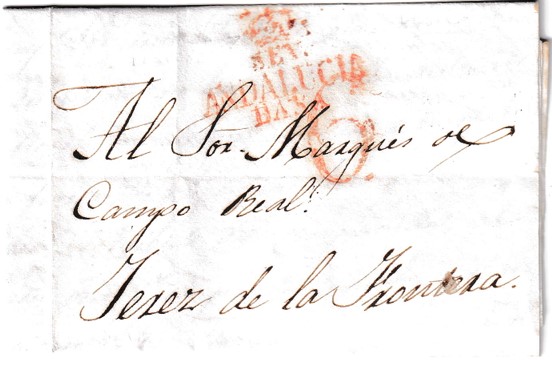 SEV.
ANDALUCIA
BAXA
6
Al Sor. Marqués de
Campo Real.
Jerez de la Frontera.